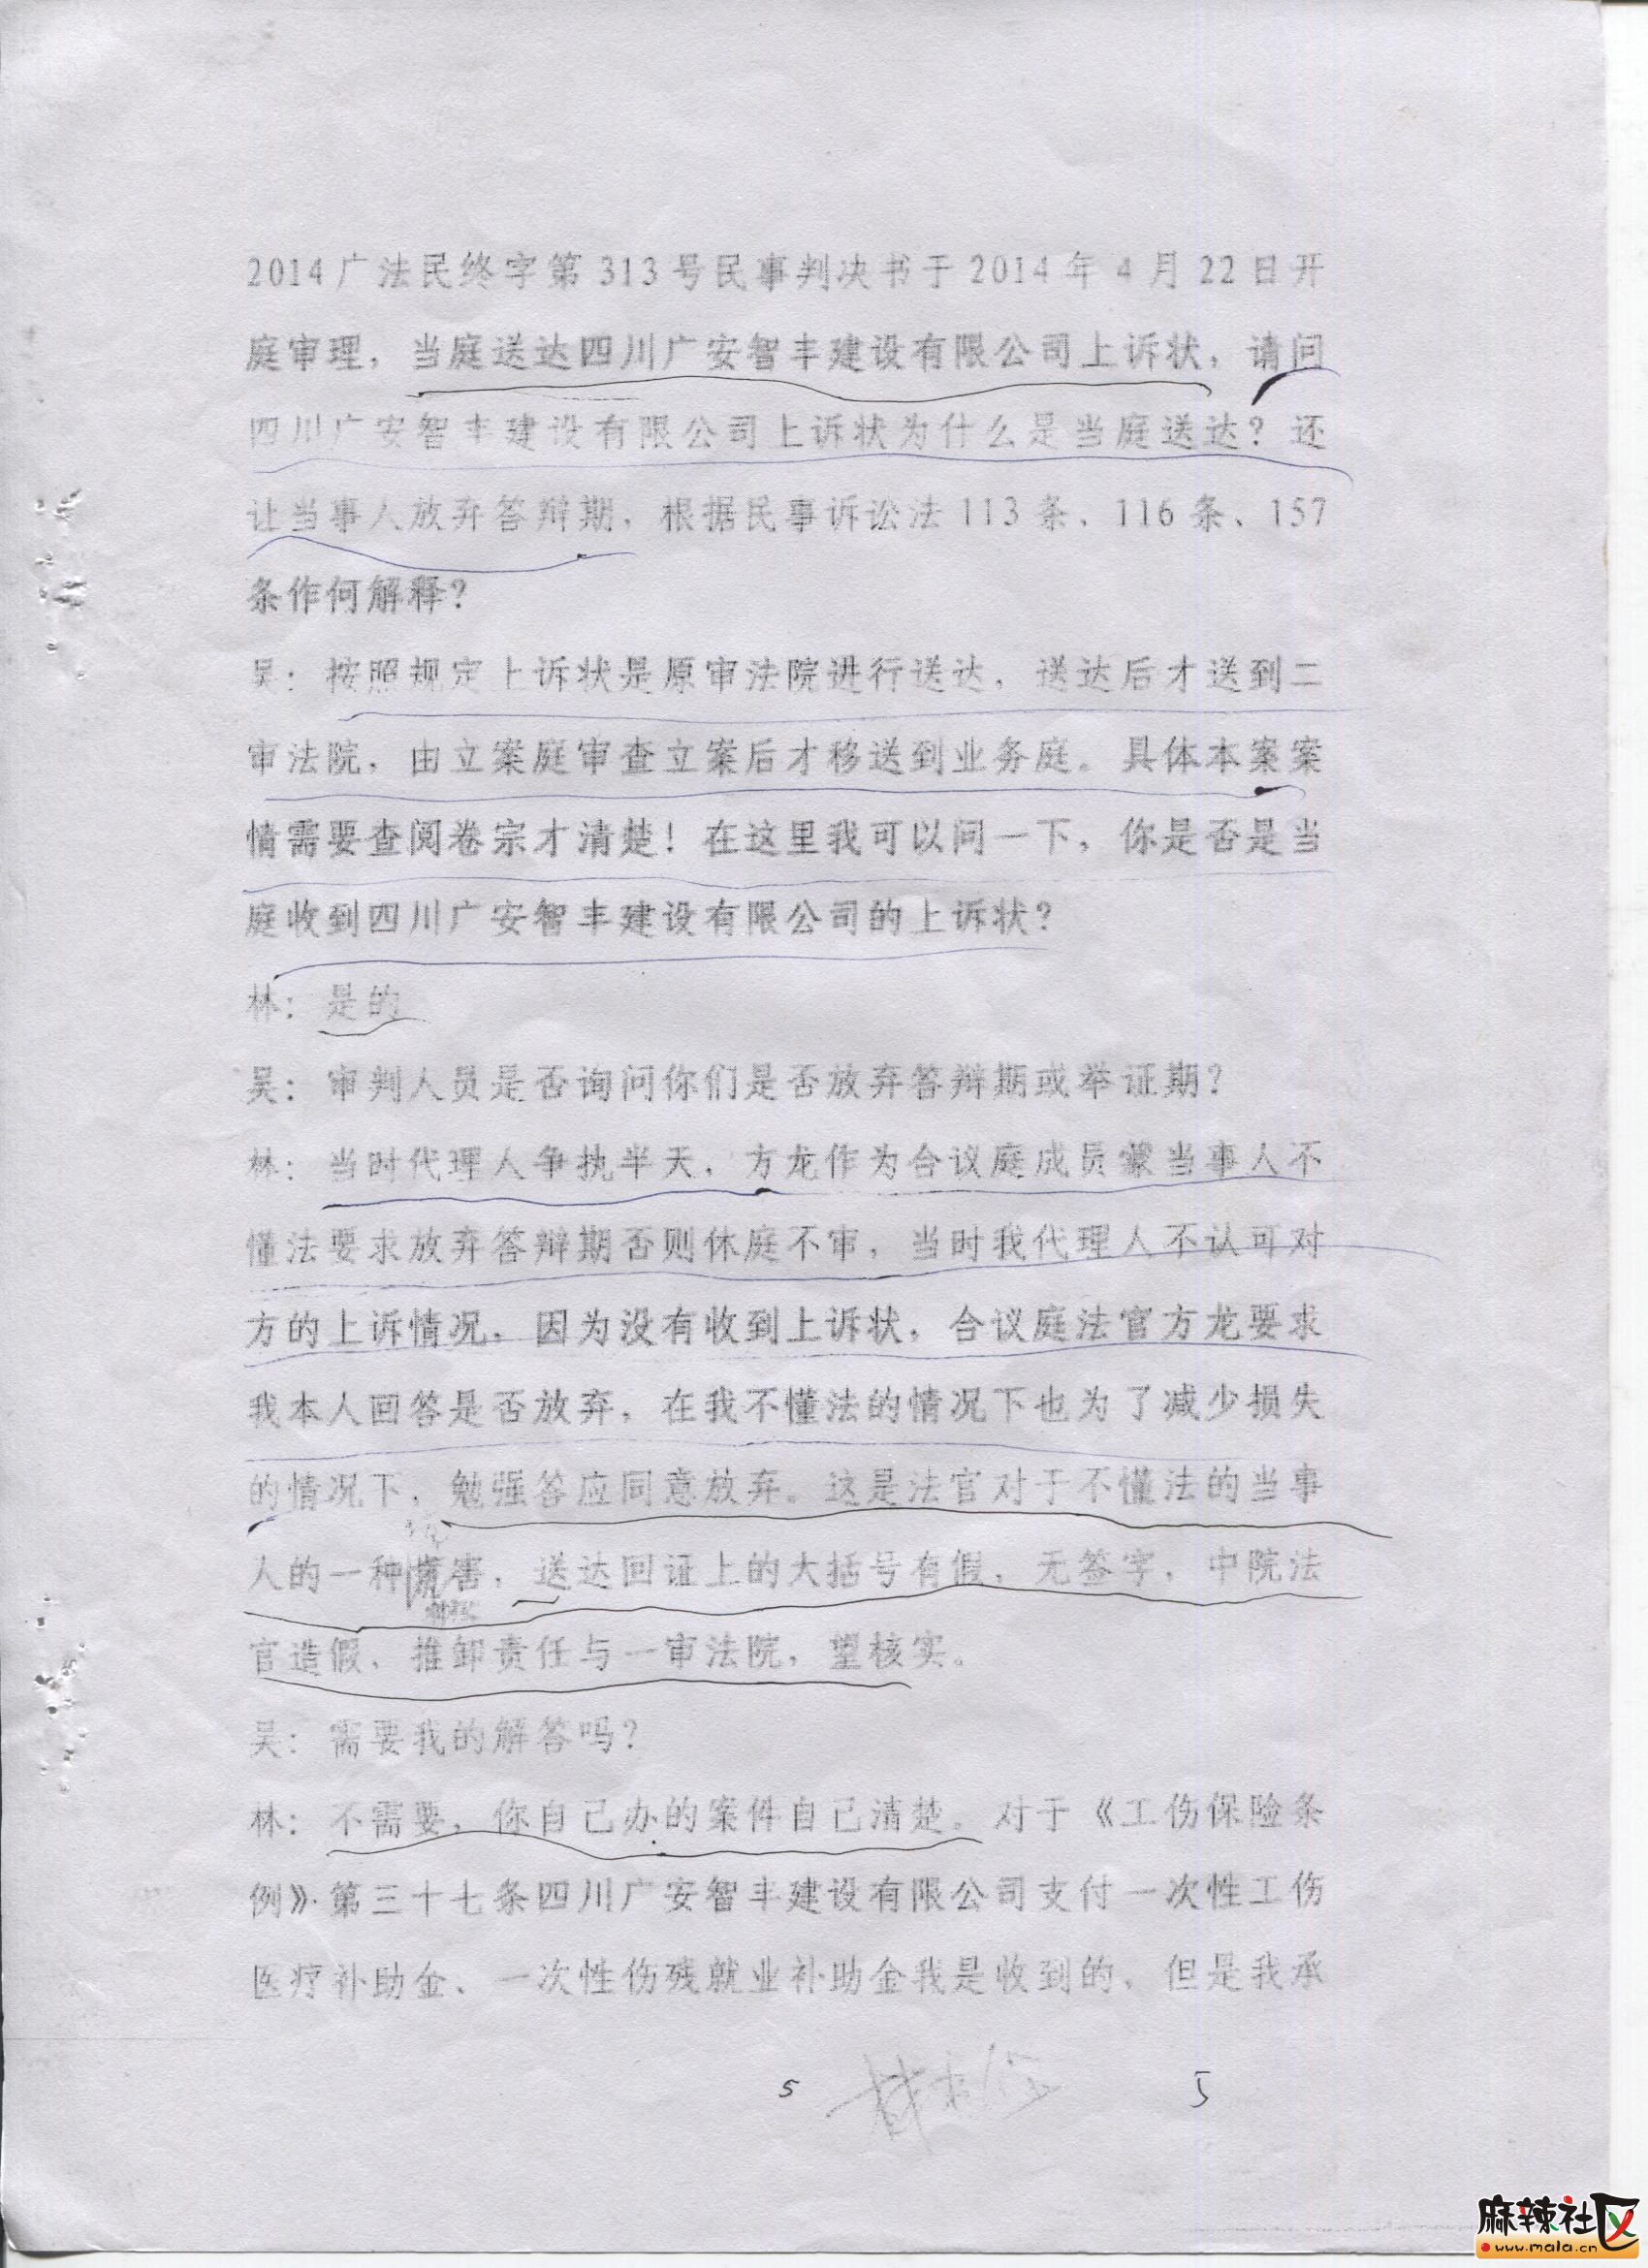 2014广法民终字第313号民事判决书于2014年4月22日开
庭审理，当庭送达四川广安智丰建设有限公司上诉状，请问
四川广安智丰建设有限公司上诉状为什么是当庭送达？还
让当事人放弃答辩期，根据民事诉讼法113条、116条、157
条作何解释？
吴：按照规定上诉状是原审法院进行送达，送达后才送到二
审法院，由立案庭审查立案后才移送到业务庭。具体本案案
情需要查阅卷宗才清楚！在这里我可以问一下，你是否是当
庭收到四川广安智丰建设有限公司的上诉状？
林：是的
吴：审判人员是否询问你们是否放弃答辩期或举证期？
林：当时代理人争执半天，方龙作为合议庭成员蒙当事人不
懂法要求放弃答辩期否则休庭不审，当时我代理人不认可对
方的上诉情况，因为没有收到上诉状，合议庭法官方龙要求
我本人回答是否放弃，在我不懂法的情况下也为了减少损失
的情况下，勉强答应同意放弃。这是法官对于不懂法的当事
人的一种害，送达回证上的大括号有假，无签字，中院法
官造假，推卸责任与一审法院，望核实。
吴：需要我的解答吗？
林：不需要，你自己办的案件自己清楚。对于《工伤保险条
例》第三十七条四川广安智丰建设有限公司支付一次性工伤
医疗补助金、一次性伤残就业补助金我是收到的，但是我承
5 5
麻辣社区
www.mala.cn